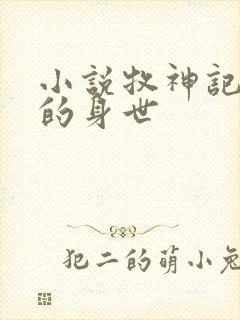 小説牧神記
的身世
犯二的萌小兔